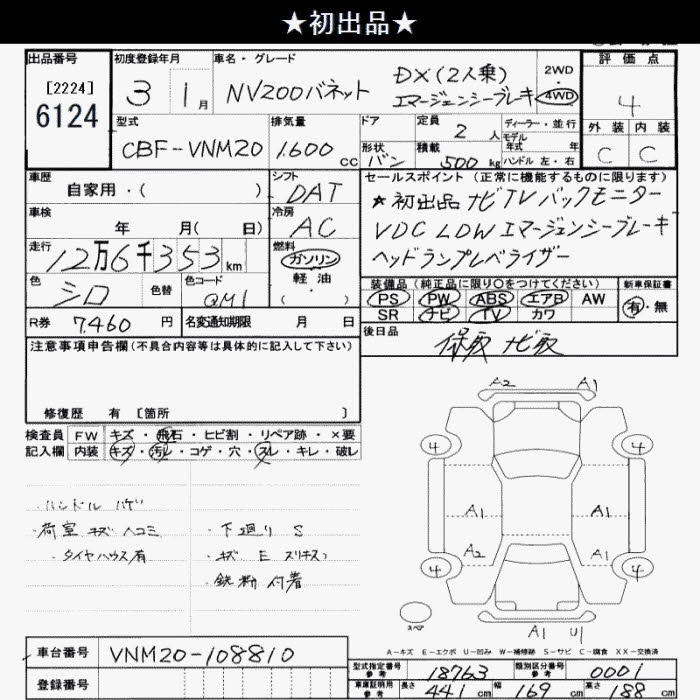 ★初出品★
出品番号
[2224]
6124
初度登録年月
3 1月
車名・グレード
NV200バネット
DX(2人乗)
エマージェンシーブレーキ
2WD
4WD
評価点
4
外装 内装
C C
型式
CBF-VNM20
排気量
1.600 cc
ドア
形状
バン
定員
2 人
積載
500 kg
ディーラー・並行
モデル
年式 年
ハンドル 左・右
車歴
自家用・( )
シフト
DAT
車検
年 月( 日)
冷房
AC
走行
12万6千353km
燃料
ガソリン
軽油
( )
色
シロ
色替
色コード
QM1
R券 7.460 円
名変通知期限 月 日
セールスポイント(正常に機能するものに限ります)
★初出品 ナビTVバックモニター
VDC LDW エマージェンシーブレーキ
ヘッドランプレベライザー
装備品(純正品に限り○をつけてください)
PS PW ABS エアB AW
SR ナビ TV カワ
新車保証書
有・無
後日品
保取 ナビ取
注意事項申告欄(不具合内容等は具体的に記入して下さい)
修復歴 有 [箇所 ]
検査員
記入欄
FW キズ・飛石・ヒビ割・リペア跡・×要
内装 キズ・汚レ・コゲ・穴・スレ・キレ・破レ
・ハンドル ハゲ
・荷室 キズ ヘコミ
・タイヤハウス有
・下廻り S
・キズ E スリキズ
・鉄粉 付着
A2 A1
4 4
A1 A1
A2 A1
4 4
スペア
A1 U1
A-キズ E-エクボ U-凹み W-補修跡 S-サビ C-腐食 XX-交換済
車台番号 VNM20-108810
登録番号
型式指定番号
参考
18763
類別区分番号
参考
0001
車庫証明用
参考
長さ 441 cm 幅 169 cm 高さ 188 cm